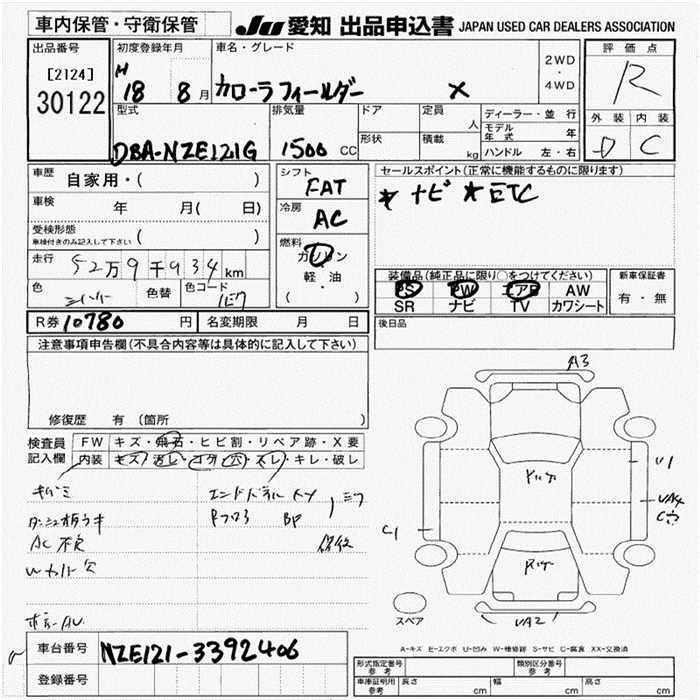 車内保管・守衛保管
JU 愛知 出品申込書 JAPAN USED CAR DEALERS ASSOCIATION
出品番号 初度登録年月 車名・グレード 2WD・4WD 評価点
[2124] 30122 H 18 8月 カローラフィールダー X R
型式 排気量 ドア 定員 人 ディーラー・並行 外装 内装
形状 積載 kg モデル年式 年
DBA-NZE121G 1500 CC ハンドル 左・右 D C
車歴 自家用・( ) シフト FAT セールスポイント(正常に機能するものに限ります)
車検 年 月( 日) 冷房 AC * ナビ * ETC
受検形態 車検付きのみ記入して下さい ( )
燃料 ガソリン・軽油 ( )
走行 52万9千934km
色 シルバー 色替 色コード 1E7
装備品(純正品に限り〇をつけてください) 新車保証書
PS PW エアB AW 有・無
SR ナビ TV カワシート
R券 10780円 名変期限 月 日 後日品
注意事項申告欄(不具合内容等は具体的に記入して下さい)
修復歴 有(箇所 )
検査員記入欄 FW キズ・飛石・ヒビ割・リペア跡・X要
内装 キズ・汚レ・コゲ・穴・スレ・キレ・破レ
キバミ
AC不良
A3
U1
C1
UA2
スペア
A-キズ E-エクボ U-凹み W-補修跡 S-サビ C-腐食 XX-交換済
車台番号 NZE121-3392406
登録番号
形式指定番号 参考 類別区分番号 参考
車庫証明用 参考 長さ cm 幅 cm 高さ cm